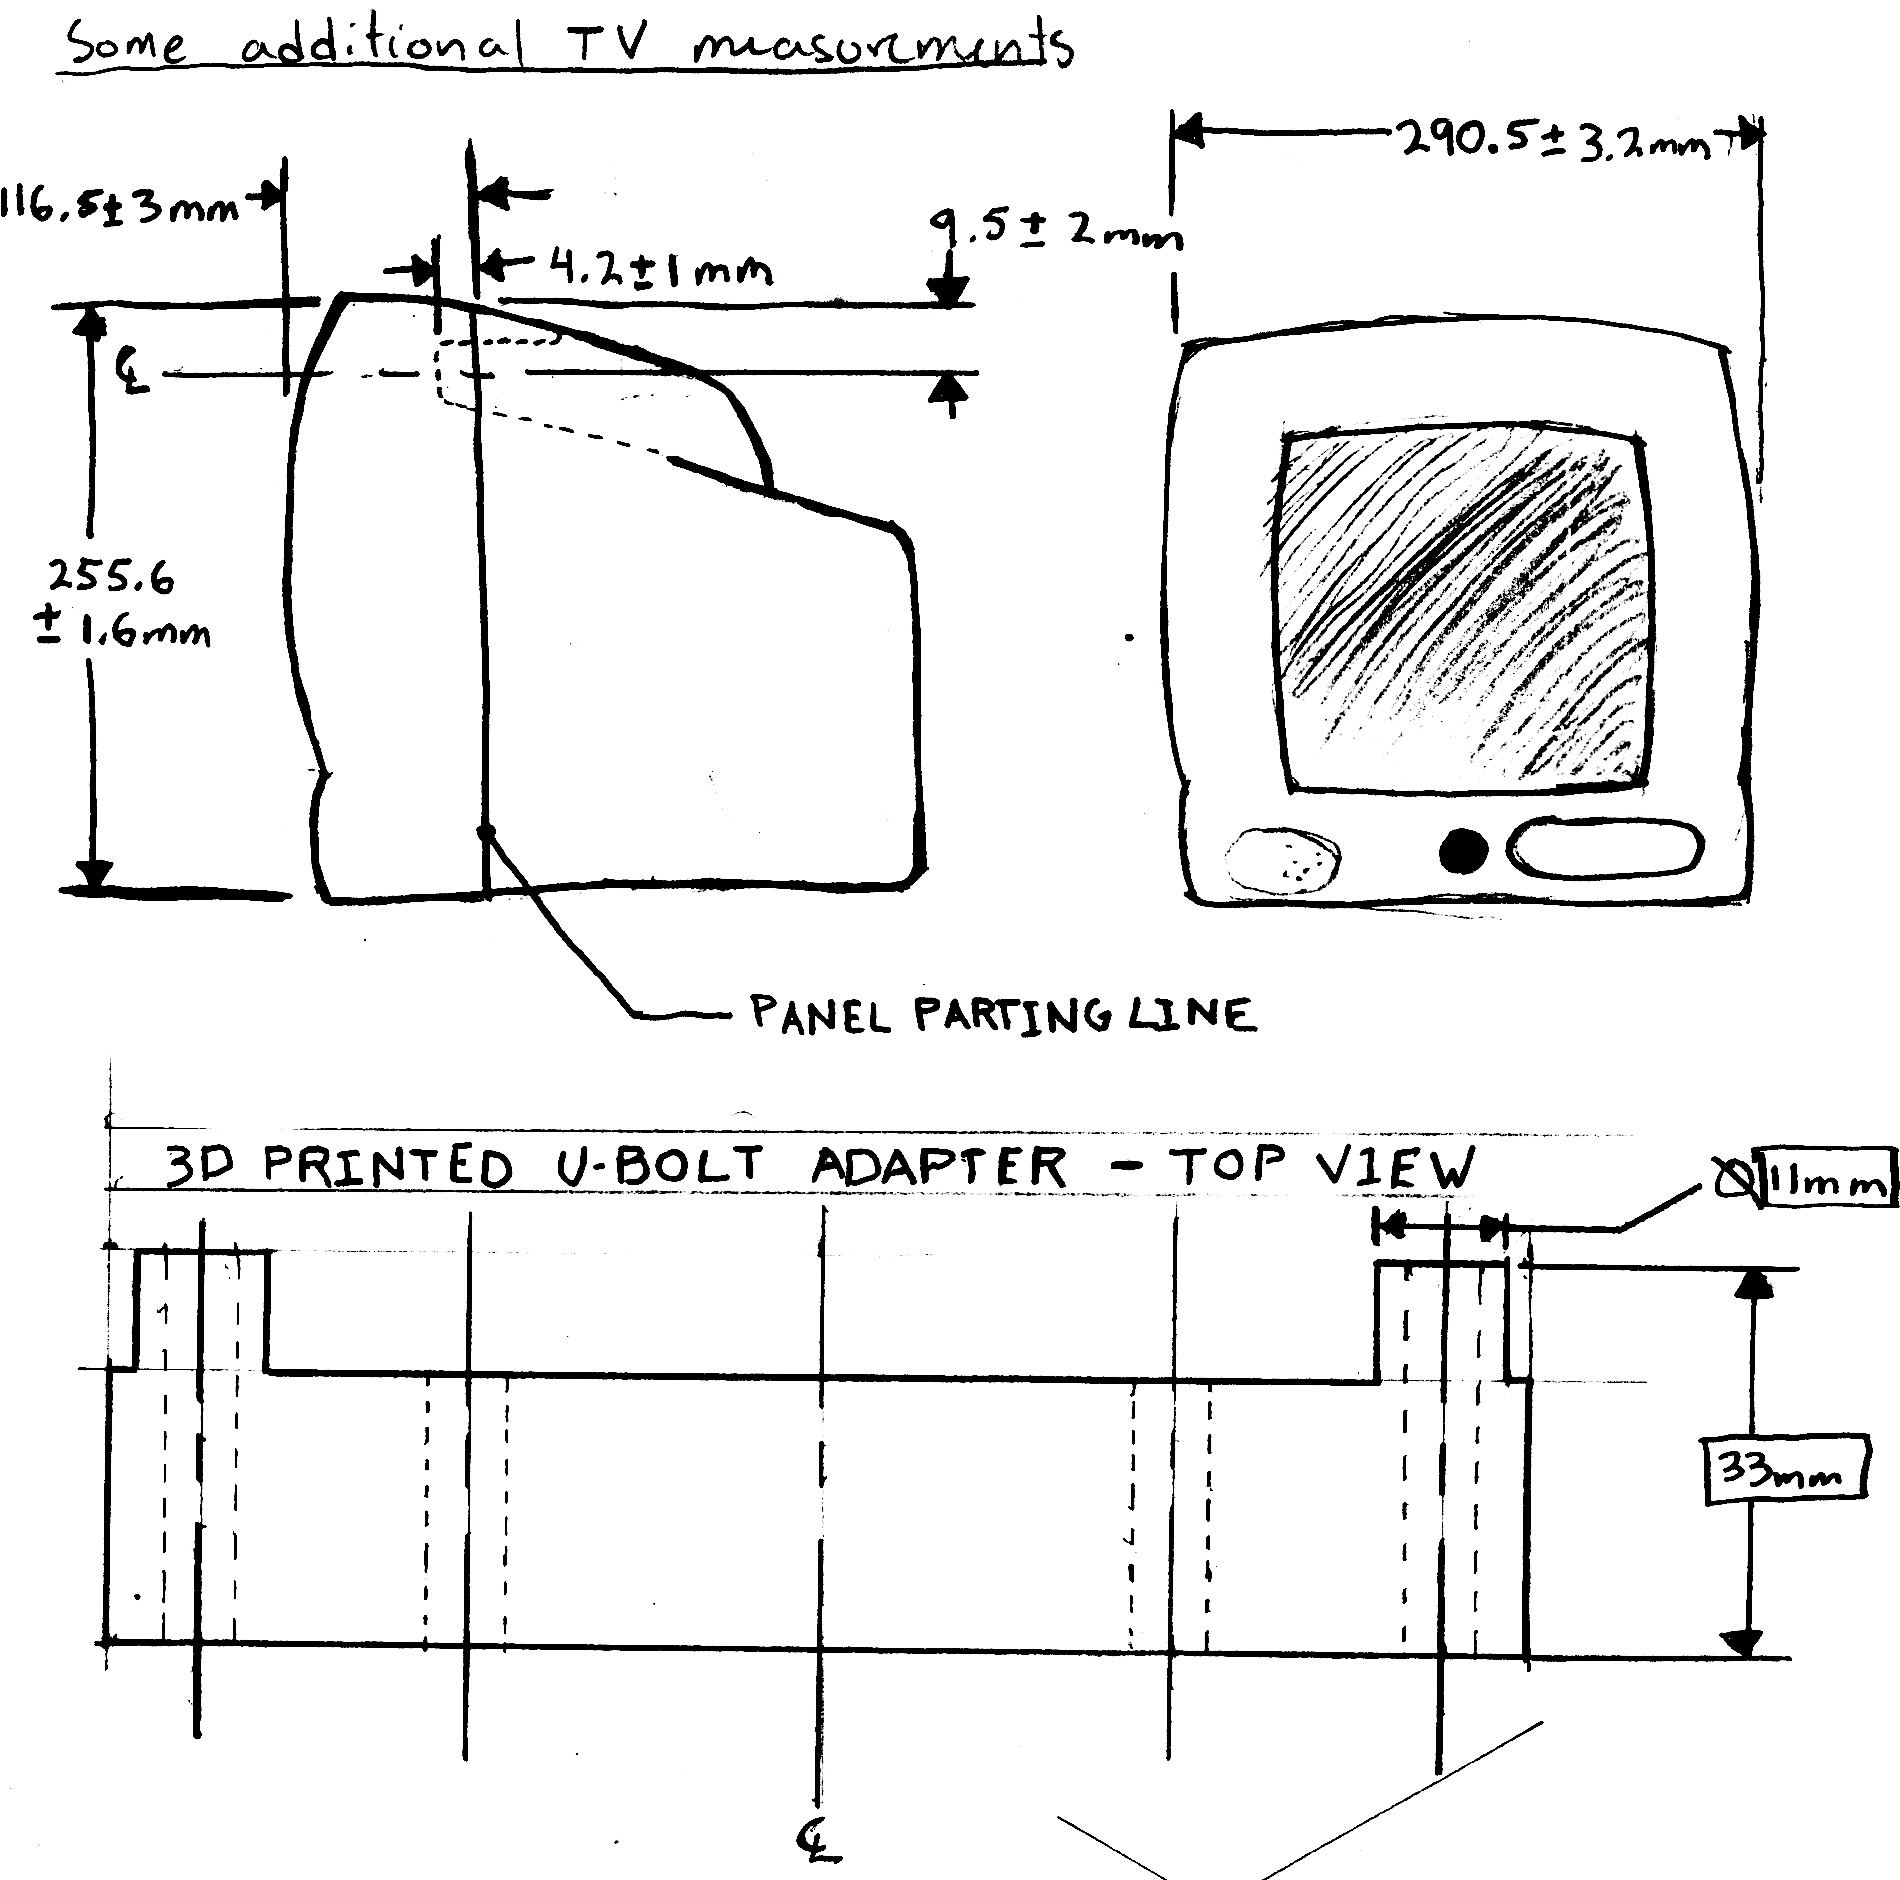 Some additional TV measurements
290.5 ± 3.2mm
116.5 ± 3mm
9.5 ± 2mm
4.2 ± 1mm
℄
255.6
± 1.6mm
PANEL PARTING LINE
3D PRINTED U-BOLT ADAPTER - TOP VIEW
Ø 11mm
33mm
℄